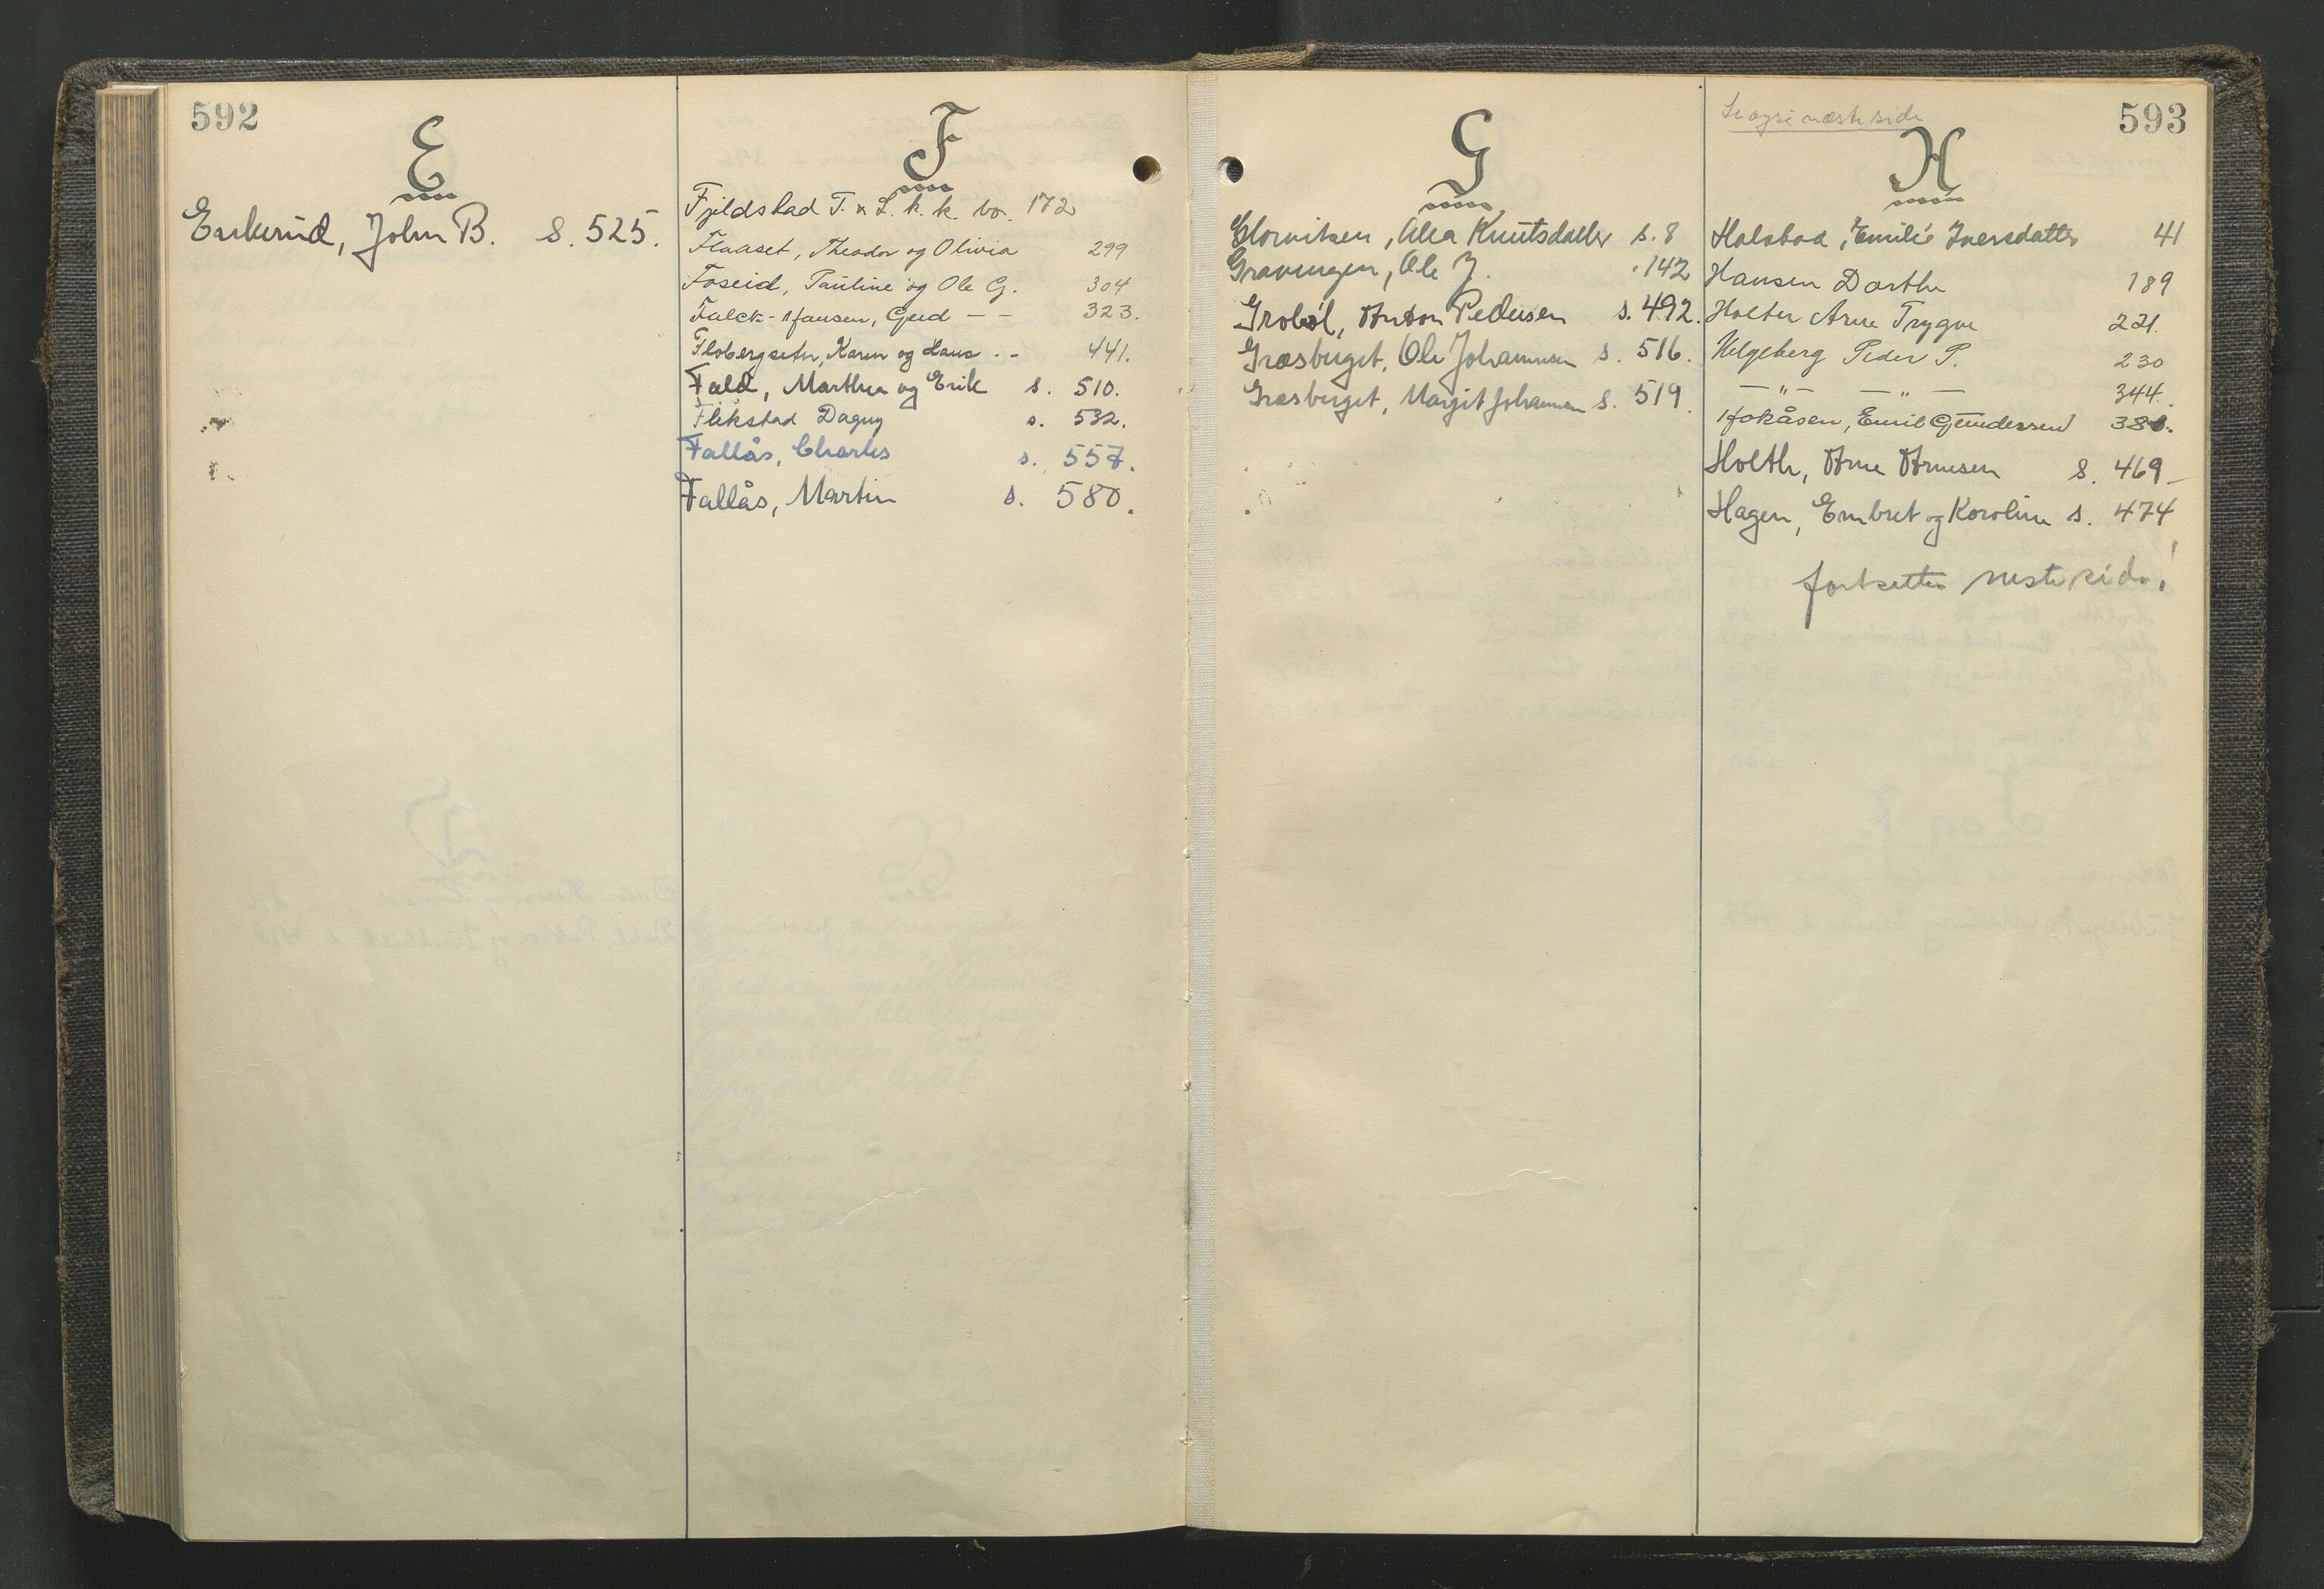 592
E
Enkerud, John B. s. 525.
F
Fjeldstad T. & L. k. k. bo. 172
Flaaset, Theodor og Olivia 299
Foseid, Pauline og Ole G. 304
Falck-Hansen, Gerd — — 323.
Flobergseter, Karen og Hans . - 441.
Fald, Marthea og Erik s. 510.
Flikstad Dagny s. 532.
Fallås, Charles s. 557.
Fallås, Martin s. 580.
G
Glorviken, Alea Knutsdatter s. 8
Gravingen, Ole J. 142
Grobøl, Anton Pedersen s. 492.
Græsberget, Ole Johannesen s. 516.
Græsberget, Margit Johannesen s. 519.
Se også næste side
593
H
Halsboa, Emilie Iversdatter 41
Hansen Dorthe 189
Holter Arne Trygve 221.
Helgeberg Peder P. 230
— " — — " — 344.
Hokåsen, Emil Gundersen 380.
Holth, Arne Arnesen s. 469 -
Hagen, Embret og Karoline s. 474
fortsetter neste side!